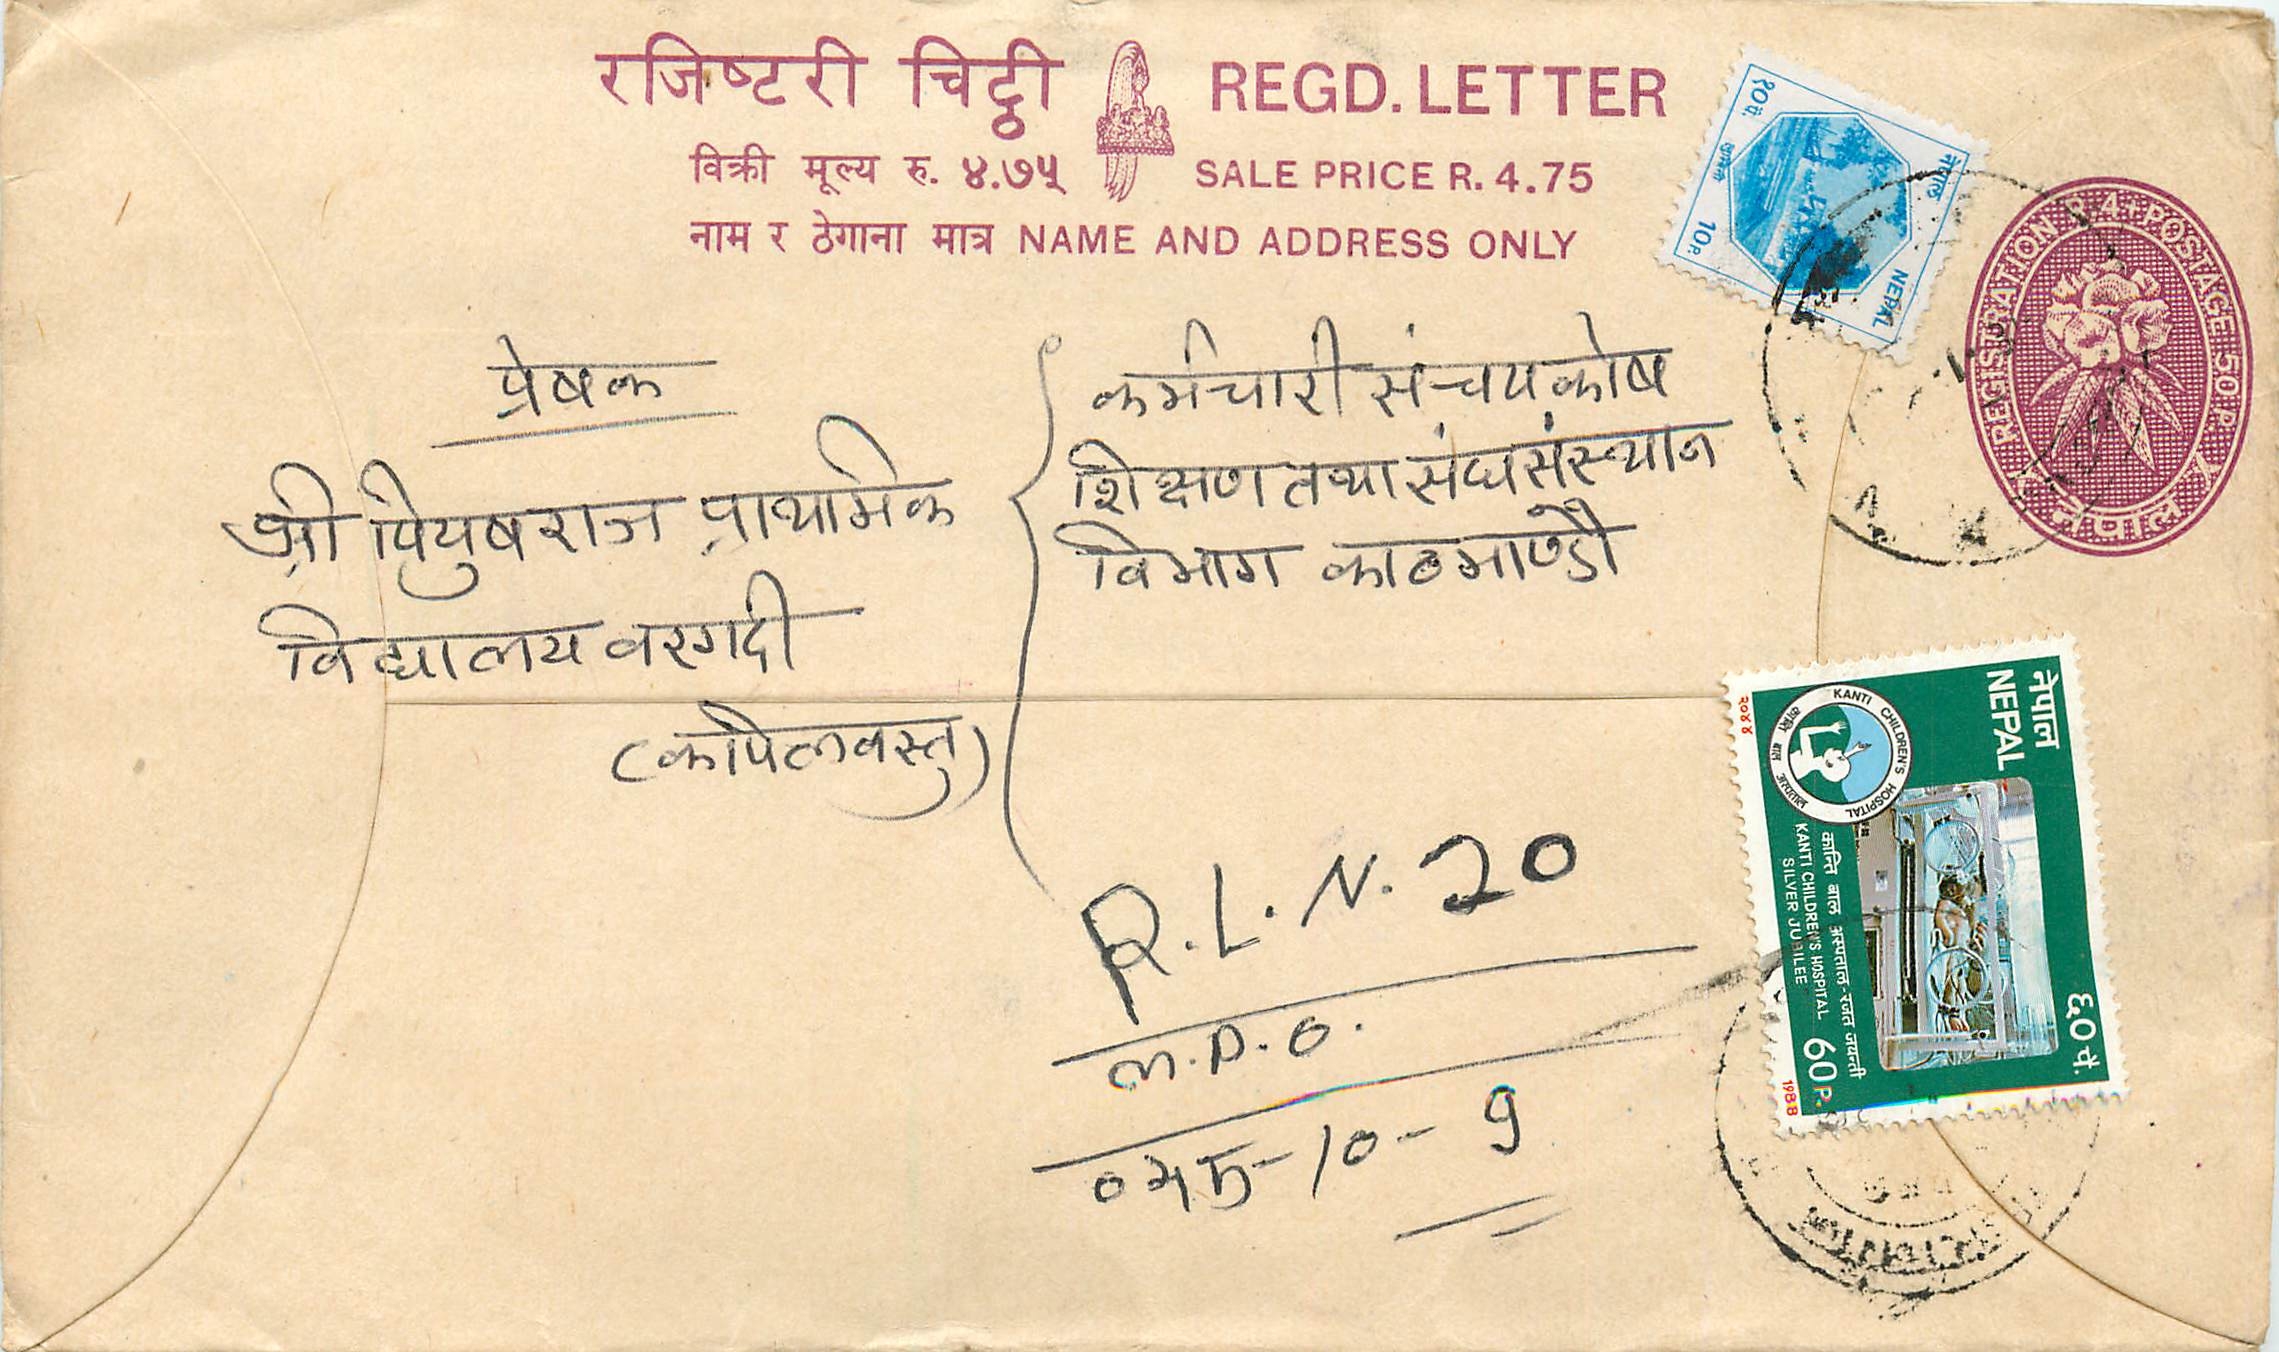 रजिष्टरी चिट्ठी REGD. LETTER
विक्री मूल्य रु. ४.७५ SALE PRICE R. 4.75
नाम र ठेगाना मात्र NAME AND ADDRESS ONLY
१० पै.
10 P.
नेपाल
NEPAL
REGISTRATION R.4 + POSTAGE 50 P.
नेपाल
प्रेषक
श्री पियुषराज प्राथमिक
विद्यालय वरगदी
(कपिलवस्तु)
कर्मचारी संचयकोष
शिक्षण तथा संघ संस्थान
विभाग काठमाण्डौ
R.L.N. 20
L.P.O.
०४५-10-9
नेपाल
NEPAL
२०४४
KANTI CHILDREN'S HOSPITAL
कान्ति बाल अस्पताल
कान्ति बाल अस्पताल-रजत जयन्ती
KANTI CHILDREN'S HOSPITAL
SILVER JUBILEE
६० पै.
60 P.
1988